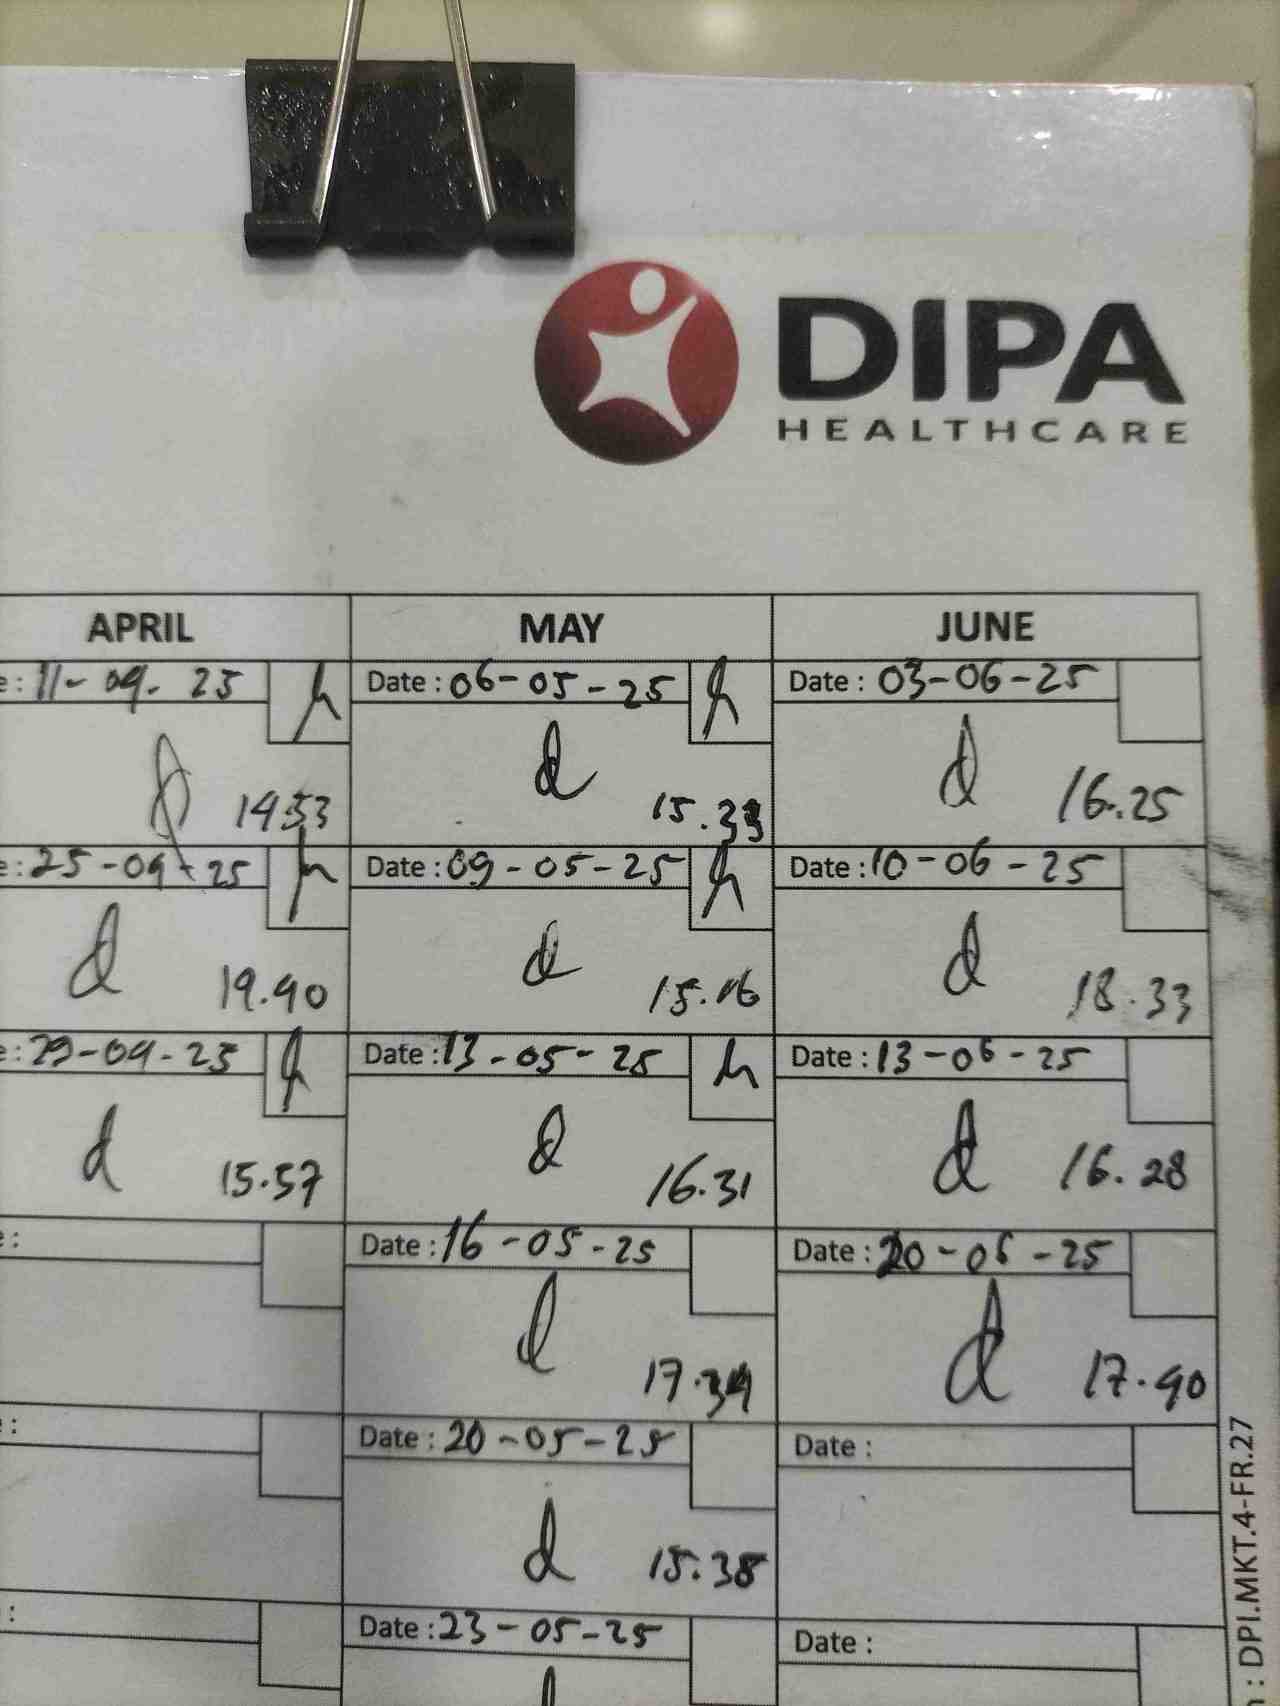 DIPA
HEALTHCARE
APRIL MAY JUNE
e : 11-04-25 Date : 06-05-25 Date : 03-06-25
14.53 15.33 16.25
e : 25-04-25 Date : 09-05-25 Date : 10-06-25
19.40 15.16 18.33
e : 29-04-25 Date : 13-05-25 Date : 13-06-25
15.57 16.31 16.28
e : Date : 16-05-25 Date : 20-06-25
17.34 17.40
: Date : 20-05-25 Date :
15.38
: Date : 23-05-25 Date :
: DPI.MKT.4-FR.27